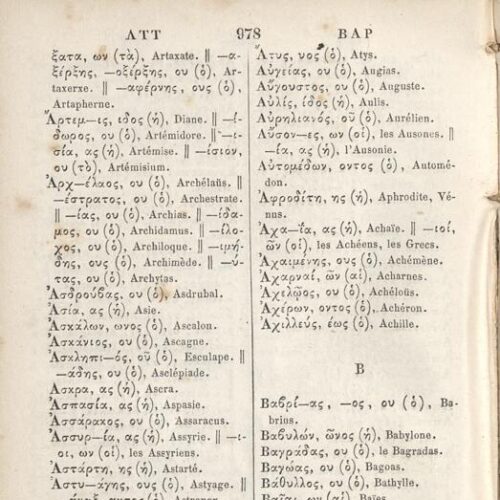 ΑΤΤ 978 ΒΑΡ
ξατα, ων (τὰ), Artaxate. ‖ —α-
ξέρξης, —οξέρξης, ου (ὁ), Ar-
taxerxe. ‖ —αφέρνης, ους (ὁ),
Artapherne.
Ἄρτεμ—ις, ιδος (ἡ), Diane. ‖ —ί-
δωρος, ου (ὁ), Artémidore. ‖ —ι-
σία, ας (ἡ), Artémise. ‖ —ίσιον,
ου (τὸ), Artémisium.
Ἀρχ—έλαος, ου (ὁ), Archélaüs. ‖
—έστρατος, ου (ὁ), Archestrate.
‖ —ίας, ου (ὁ), Archias. ‖ —ίδα-
μος, ου (ὁ), Archidamus. ‖ —ίλο-
χος, ου (ὁ), Archiloque. ‖ —ιμή-
δης, ους (ὁ), Archimède. ‖ —ύ-
τας, ου (ὁ), Archytas.
Ἀσδρούβας, ου (ὁ), Asdrubal.
Ἀσία, ας (ἡ), Asie.
Ἀσκάλων, ωνος (ὁ), Ascalon.
Ἀσκάνιος, ου (ὁ), Ascagne.
Ἀσκληπι—ός, οῦ (ὁ), Esculape. ‖
—άδης, ου (ὁ), Asclépiade.
Ἄσκρα, ας (ἡ), Ascra.
Ἀσπασία, ας (ἡ), Aspasie.
Ἀσσάρακος, ου (ὁ), Assaracus.
Ἀσσυρ—ία, ας (ἡ), Assyrie. ‖ —ι-
οι, ων (οἱ), les Assyriens.
Ἀστάρτη, ης (ἡ), Astarté.
Ἀστυ—άγης, ους (ὁ), Astyage. ‖
Ἄτυς, υος (ὁ), Atys.
Αὐγείας, ου (ὁ), Augias.
Αὔγουστος, ου (ὁ), Auguste.
Αὐλίς, ίδος (ἡ), Aulis.
Αὐρηλιανός, οῦ (ὁ), Aurélien.
Αὔσον—ες, ων (οἱ), les Ausones. ‖
—ία, ας (ἡ), l'Ausonie.
Αὐτομέδων, οντος (ὁ), Automé-
don.
Ἀφροδίτη, ης (ἡ), Aphrodite, Vé-
nus.
Ἀχα—ΐα, ας (ἡ), Achaïe. ‖ —ιοί,
ῶν (οἱ), les Achéens, les Grecs.
Ἀχαιμένης, ους (ὁ), Achémène.
Ἀχαρναί, ῶν (αἱ), Acharnes.
Ἀχελῷος, ου (ὁ), Achéloüs.
Ἀχέρων, οντος (ὁ), Achéron.
Ἀχιλλεύς, έως (ὁ), Achille.
Β
Βαβρί—ας, —ος, ου (ὁ), Ba-
brius.
Βαβυλών, ῶνος (ἡ), Babylone.
Βαγράδας, ου (ὁ), le Bagradas.
Βαγώας, ου (ὁ), Bagoas.
Βάθυλλος, ου (ὁ), Bathylle.
Βαῖαι, ων (αἱ), Baïes.